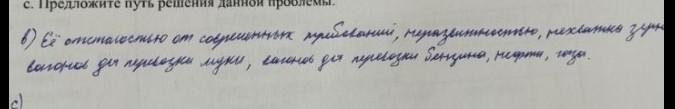 с. Предложите путь решения данной проблемы.
в) Её отсталостью от современных требований, неразвитностью, нехватка зерно
вагонов для перевозки муки, вагонов для перевозки бензина, нефти, газа.
с)